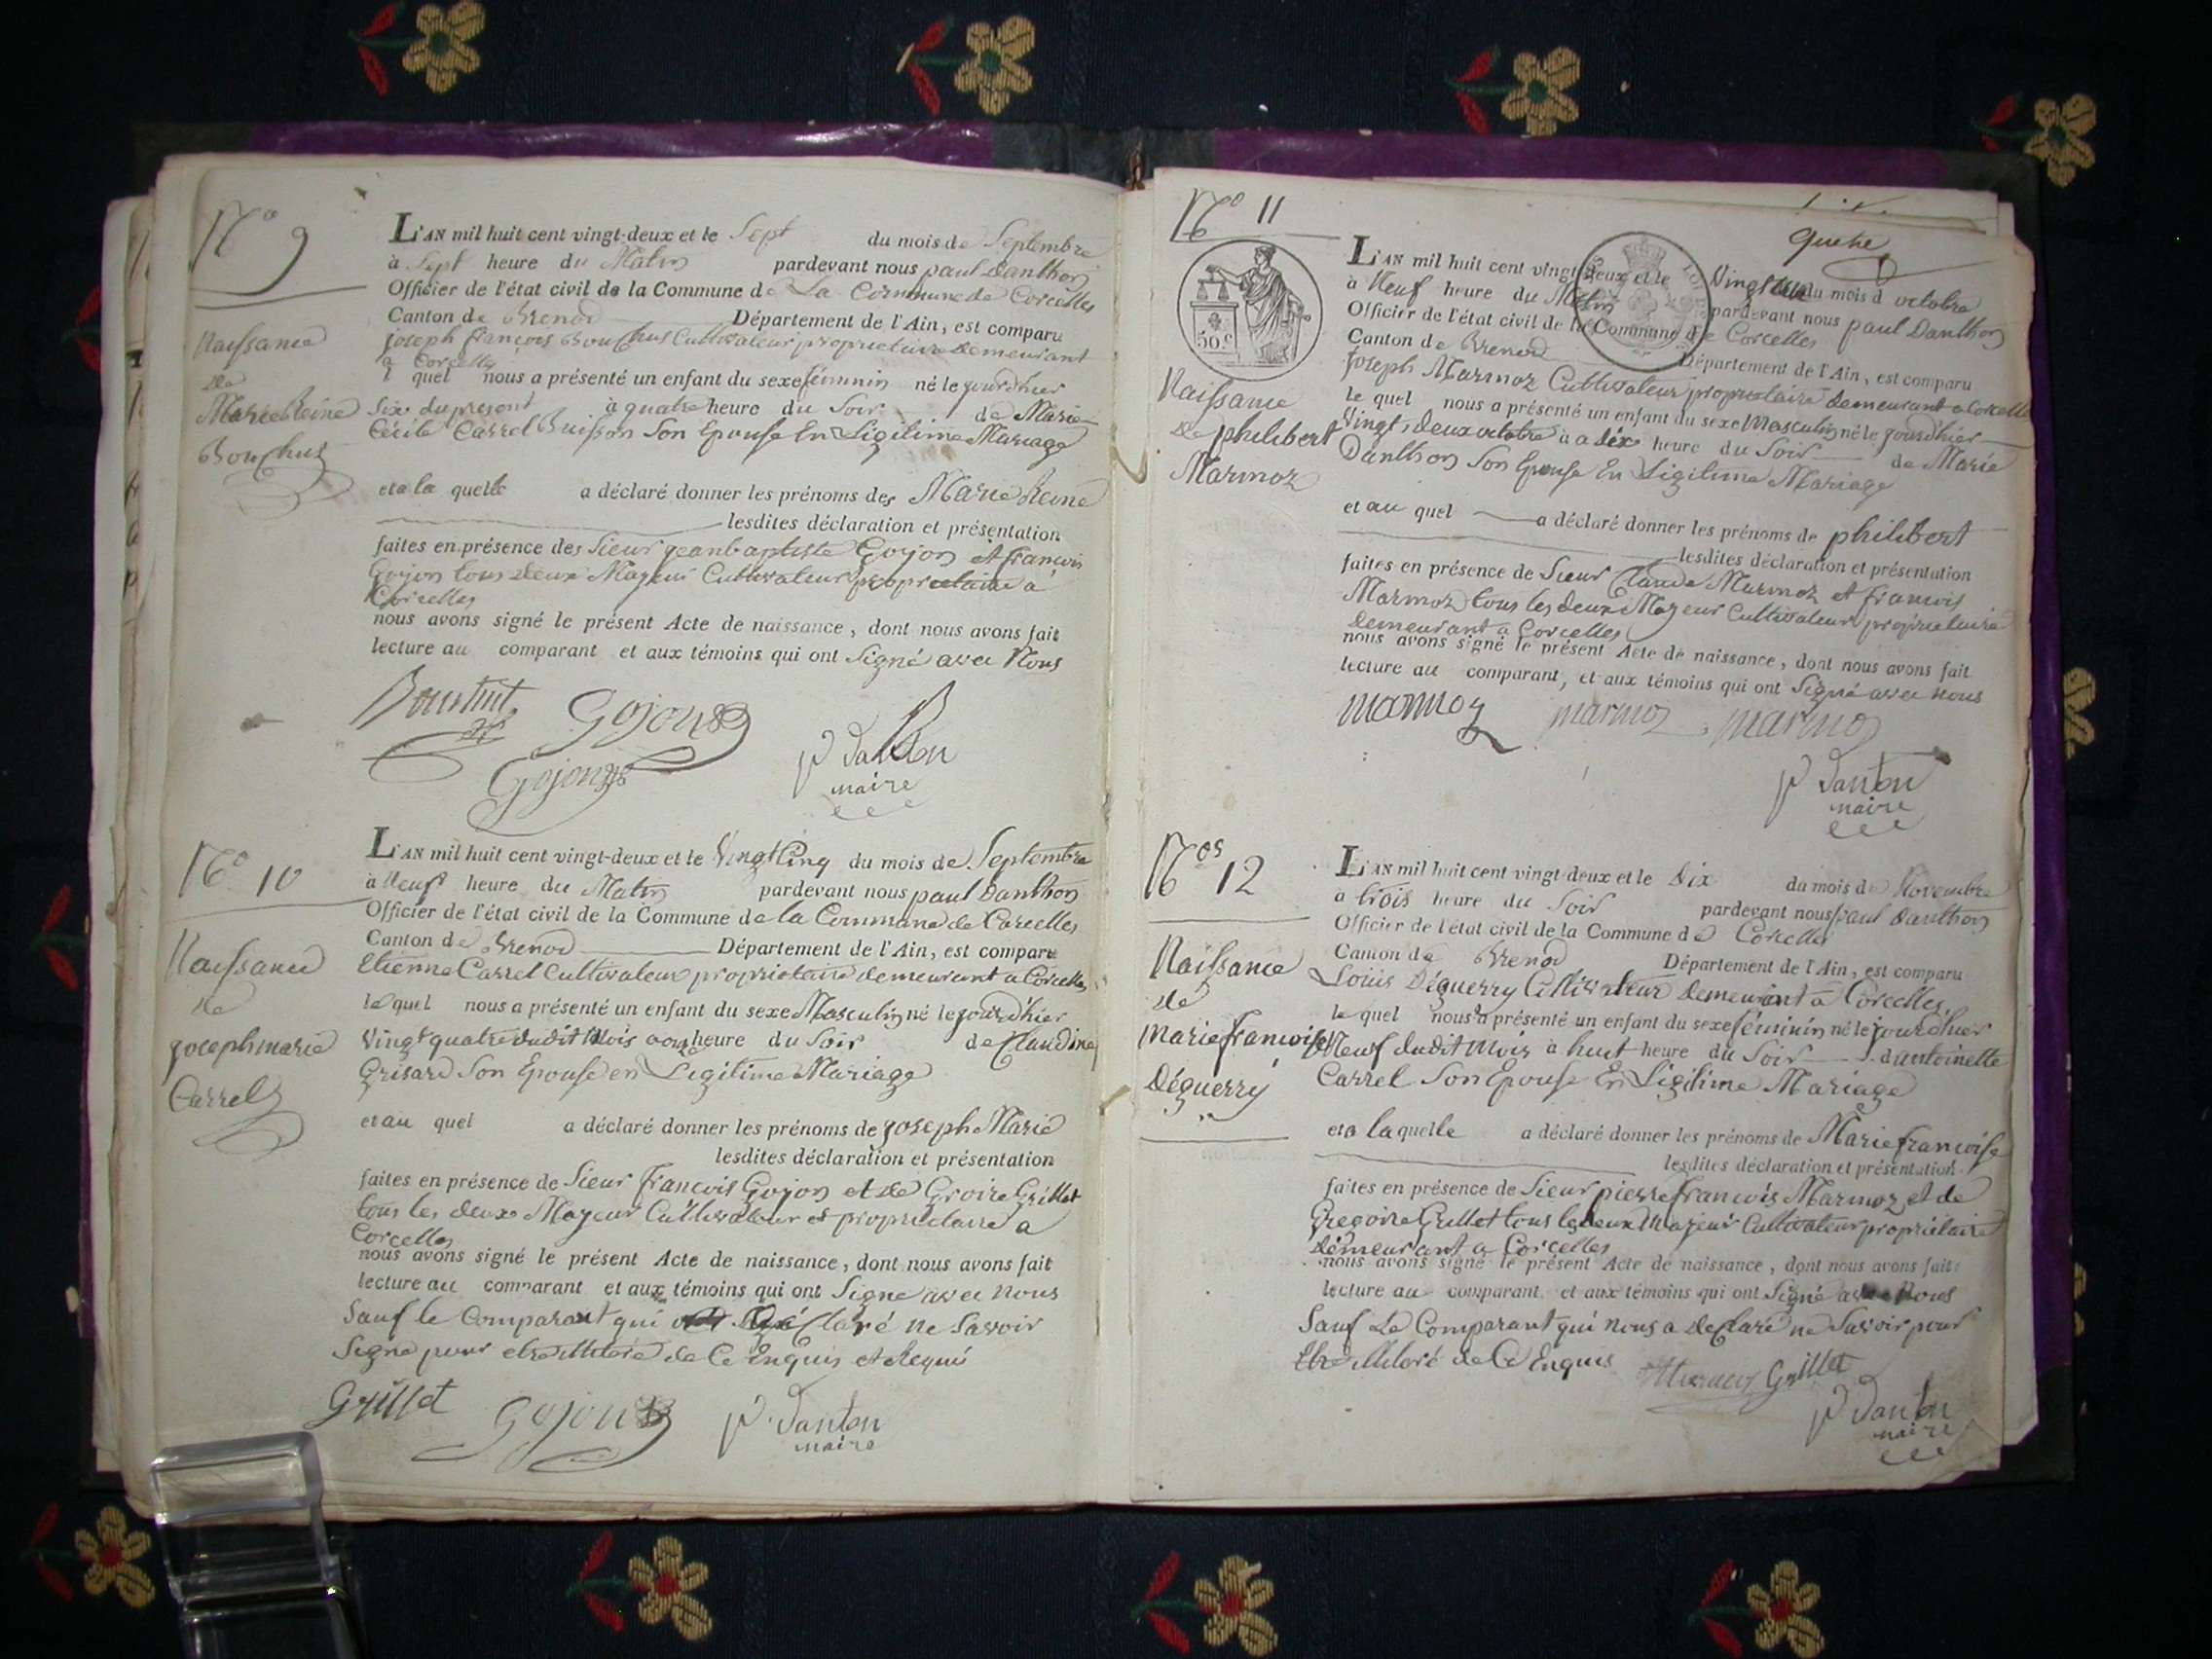 N.o 9
Naissance
de
Marie Reine
Bouchus
L'AN mil huit cent vingt-deux et le Sept du mois de Septembre
à Sept heure du Matin pardevant nous paul Danthon
Officier de l'état civil de la Commune de La Commune de Corcelles
Canton de Brenod Département de l'Ain, est comparu
joseph françois Bouchus Cultivateur propriétaire demeurant
a Corcelles
l quel nous a présenté un enfant du sexe féminin né le jourdhier
Six du present à quatre heure du Soir de Marie
Cécile Carrel Buisson Son Epouse En Légitime Mariage
et a la quelle a déclaré donner les prénoms des Marie Reine
lesdites déclaration et présentation
faites en présence des Sieur jeanbaptiste Gojon et françois
Gojon tous deux Majeur Cultivateur propriétaire a
Corcelles
nous avons signé le présent Acte de naissance, dont nous avons fait
lecture au comparant et aux témoins qui ont Signé avec Nous
Gojon
Gojon
p Danton
maire
N.o 10
Naissance
de
joseph marie
Carrel
L'AN mil huit cent vingt-deux et le Vingt Cinq du mois de Septembre
à Neuf heure du Matin pardevant nous paul Danthon
Officier de l'état civil de la Commune de la Commune de Corcelles
Canton de Brenod Département de l'Ain, est comparu
Etienne Carrel Cultivateur propriétaire demeurant a Corcelles
le quel nous a présenté un enfant du sexe Masculin né le jourdhier
Vingt quatre dudit Mois a onze heure du Soir de Claudine
Grisard Son Epouse en Légitime Mariage
et au quel a déclaré donner les prénoms de joseph Marie
lesdites déclaration et présentation
faites en présence de Sieur françois Gojon et de Groire Grillet
tous les deux Majeur Cultivateur et propriétaire a
Corcelles
nous avons signé le présent Acte de naissance, dont nous avons fait
lecture au comparant et aux témoins qui ont Signé avec nous
Sauf le Comparant qui déclaré ne Savoir
Signé pour etre illiteré de Ce Enquis et Requis
Grillet Gojon p Danton
maire
N.o 11
50 c
Naissance
de philibert
Marmoz
L'AN mil huit cent vingt-deux et le Vingt du mois d octobre
à Neuf heure du Matin pardevant nous paul Danthon
Officier de l'état civil de la Commune de Corcelles
Canton de Brenod Département de l'Ain, est comparu
joseph Marmoz Cultivateur propriétaire demeurant a Corcelle
le quel nous a présenté un enfant du sexe Masculin né le jourdhier
Vingt, deux octobre à a dix heure du Soir de Marie
Danthon Son Epouse En Légitime Mariage
et au quel a déclaré donner les prénoms de philibert
lesdites déclaration et présentation
faites en présence de Sieur Claude Marmoz et françois
Marmoz tous les deux Majeur Cultivateur propriétaire
demeurant a Corcelles
nous avons signé le présent Acte de naissance, dont nous avons fait
lecture au comparant, et aux témoins qui ont Signé avec nous
marmoz marmoz marmoz
p Danton
maire
N.os 12
Naissance
de
Marie françoise
Déguerry
L'AN mil huit cent vingt-deux et le Dix du mois de Novembre
a trois heure du Soir pardevant nous paul Danthon
Officier de l'état civil de la Commune de Corcelles
Canton de Brenod Département de l'Ain, est comparu
Louis Déguerry Cultivateur demeurant a Corcelles
le quel nous a présenté un enfant du sexe féminin né le jourdhier
Neuf dudit Mois à huit heure du Soir d antoinette
Carrel Son Epouse En Légitime Mariage
et a laquelle a déclaré donner les prénoms de Marie françoise
lesdites déclaration et présentation
faites en présence de Sieur pierre françois Marmoz et de
Gregoire Grillet tous les deux Majeur Cultivateur propriétaire
demeurant a Corcelles
nous avons signé le présent Acte de naissance, dont nous avons fait
lecture au comparant et aux témoins qui ont Signé avec Nous
Sauf Le Comparant qui nous a declaré ne Savoir pour
Etre illiteré de Ce Enquis
Marmoz Grillet
p Danton
maire